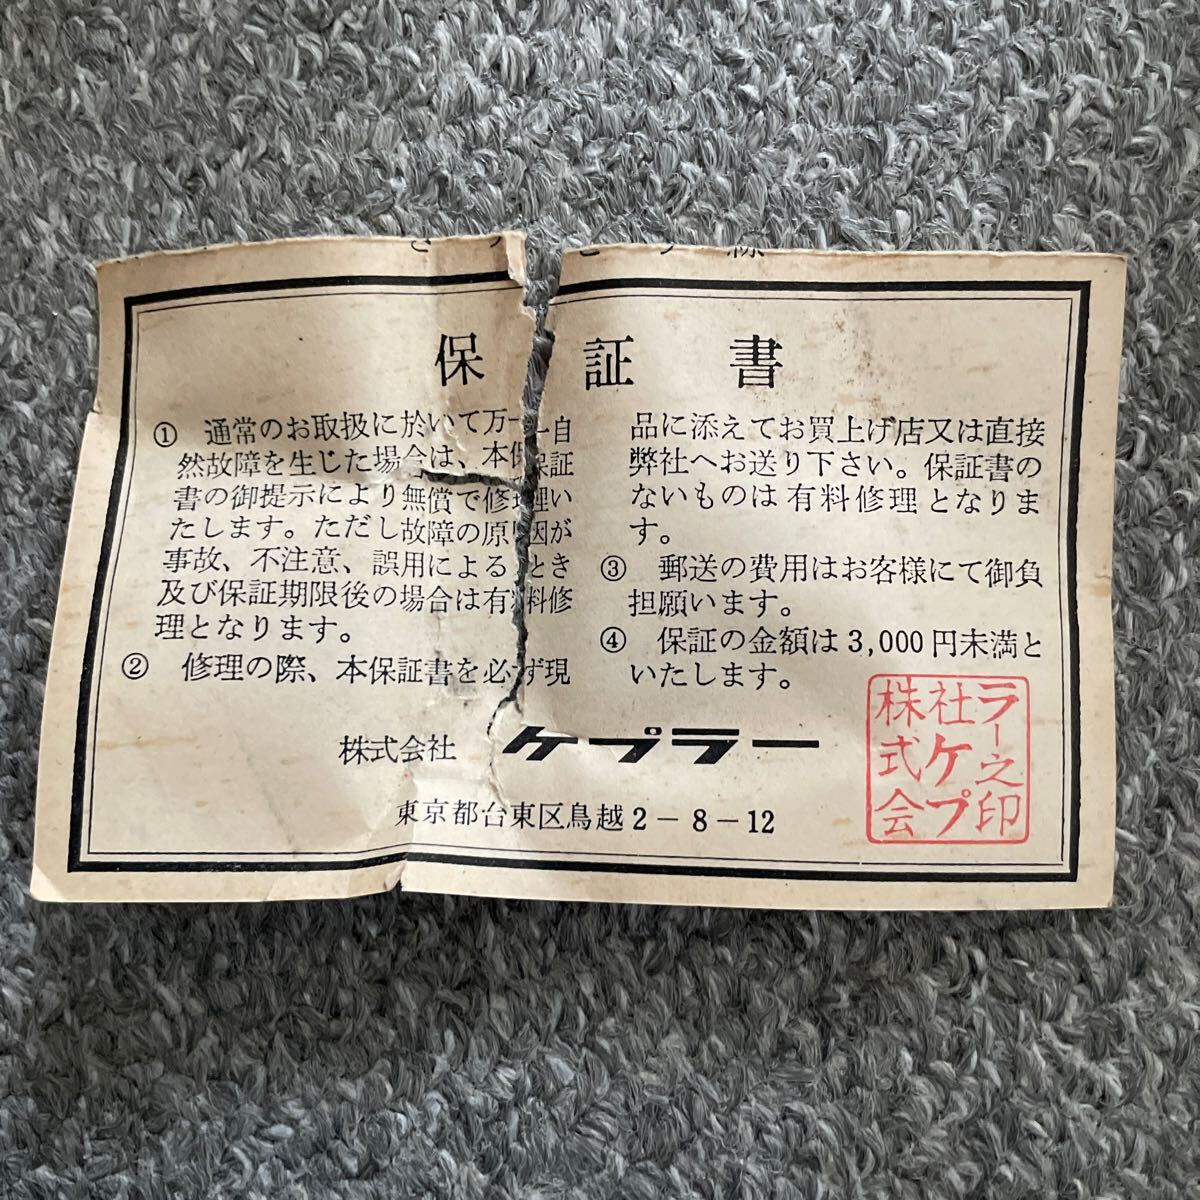 きりとり線
保証書
① 通常のお取扱に於いて万一自
然故障を生じた場合は、本保証
書の御提示により無償で修理い
たします。ただし故障の原因が
事故、不注意、誤用によるとき
及び保証期限後の場合は有料修
理となります。
② 修理の際、本保証書を必ず現
品に添えてお買上げ店又は直接
弊社へお送り下さい。保証書の
ないものは有料修理となりま
す。
③ 郵送の費用はお客様にて御負
担願います。
④ 保証の金額は3,000円未満と
いたします。
株式会社 ケプラー
東京都台東区鳥越2-8-12
株式会
社ケプ
ラー之印